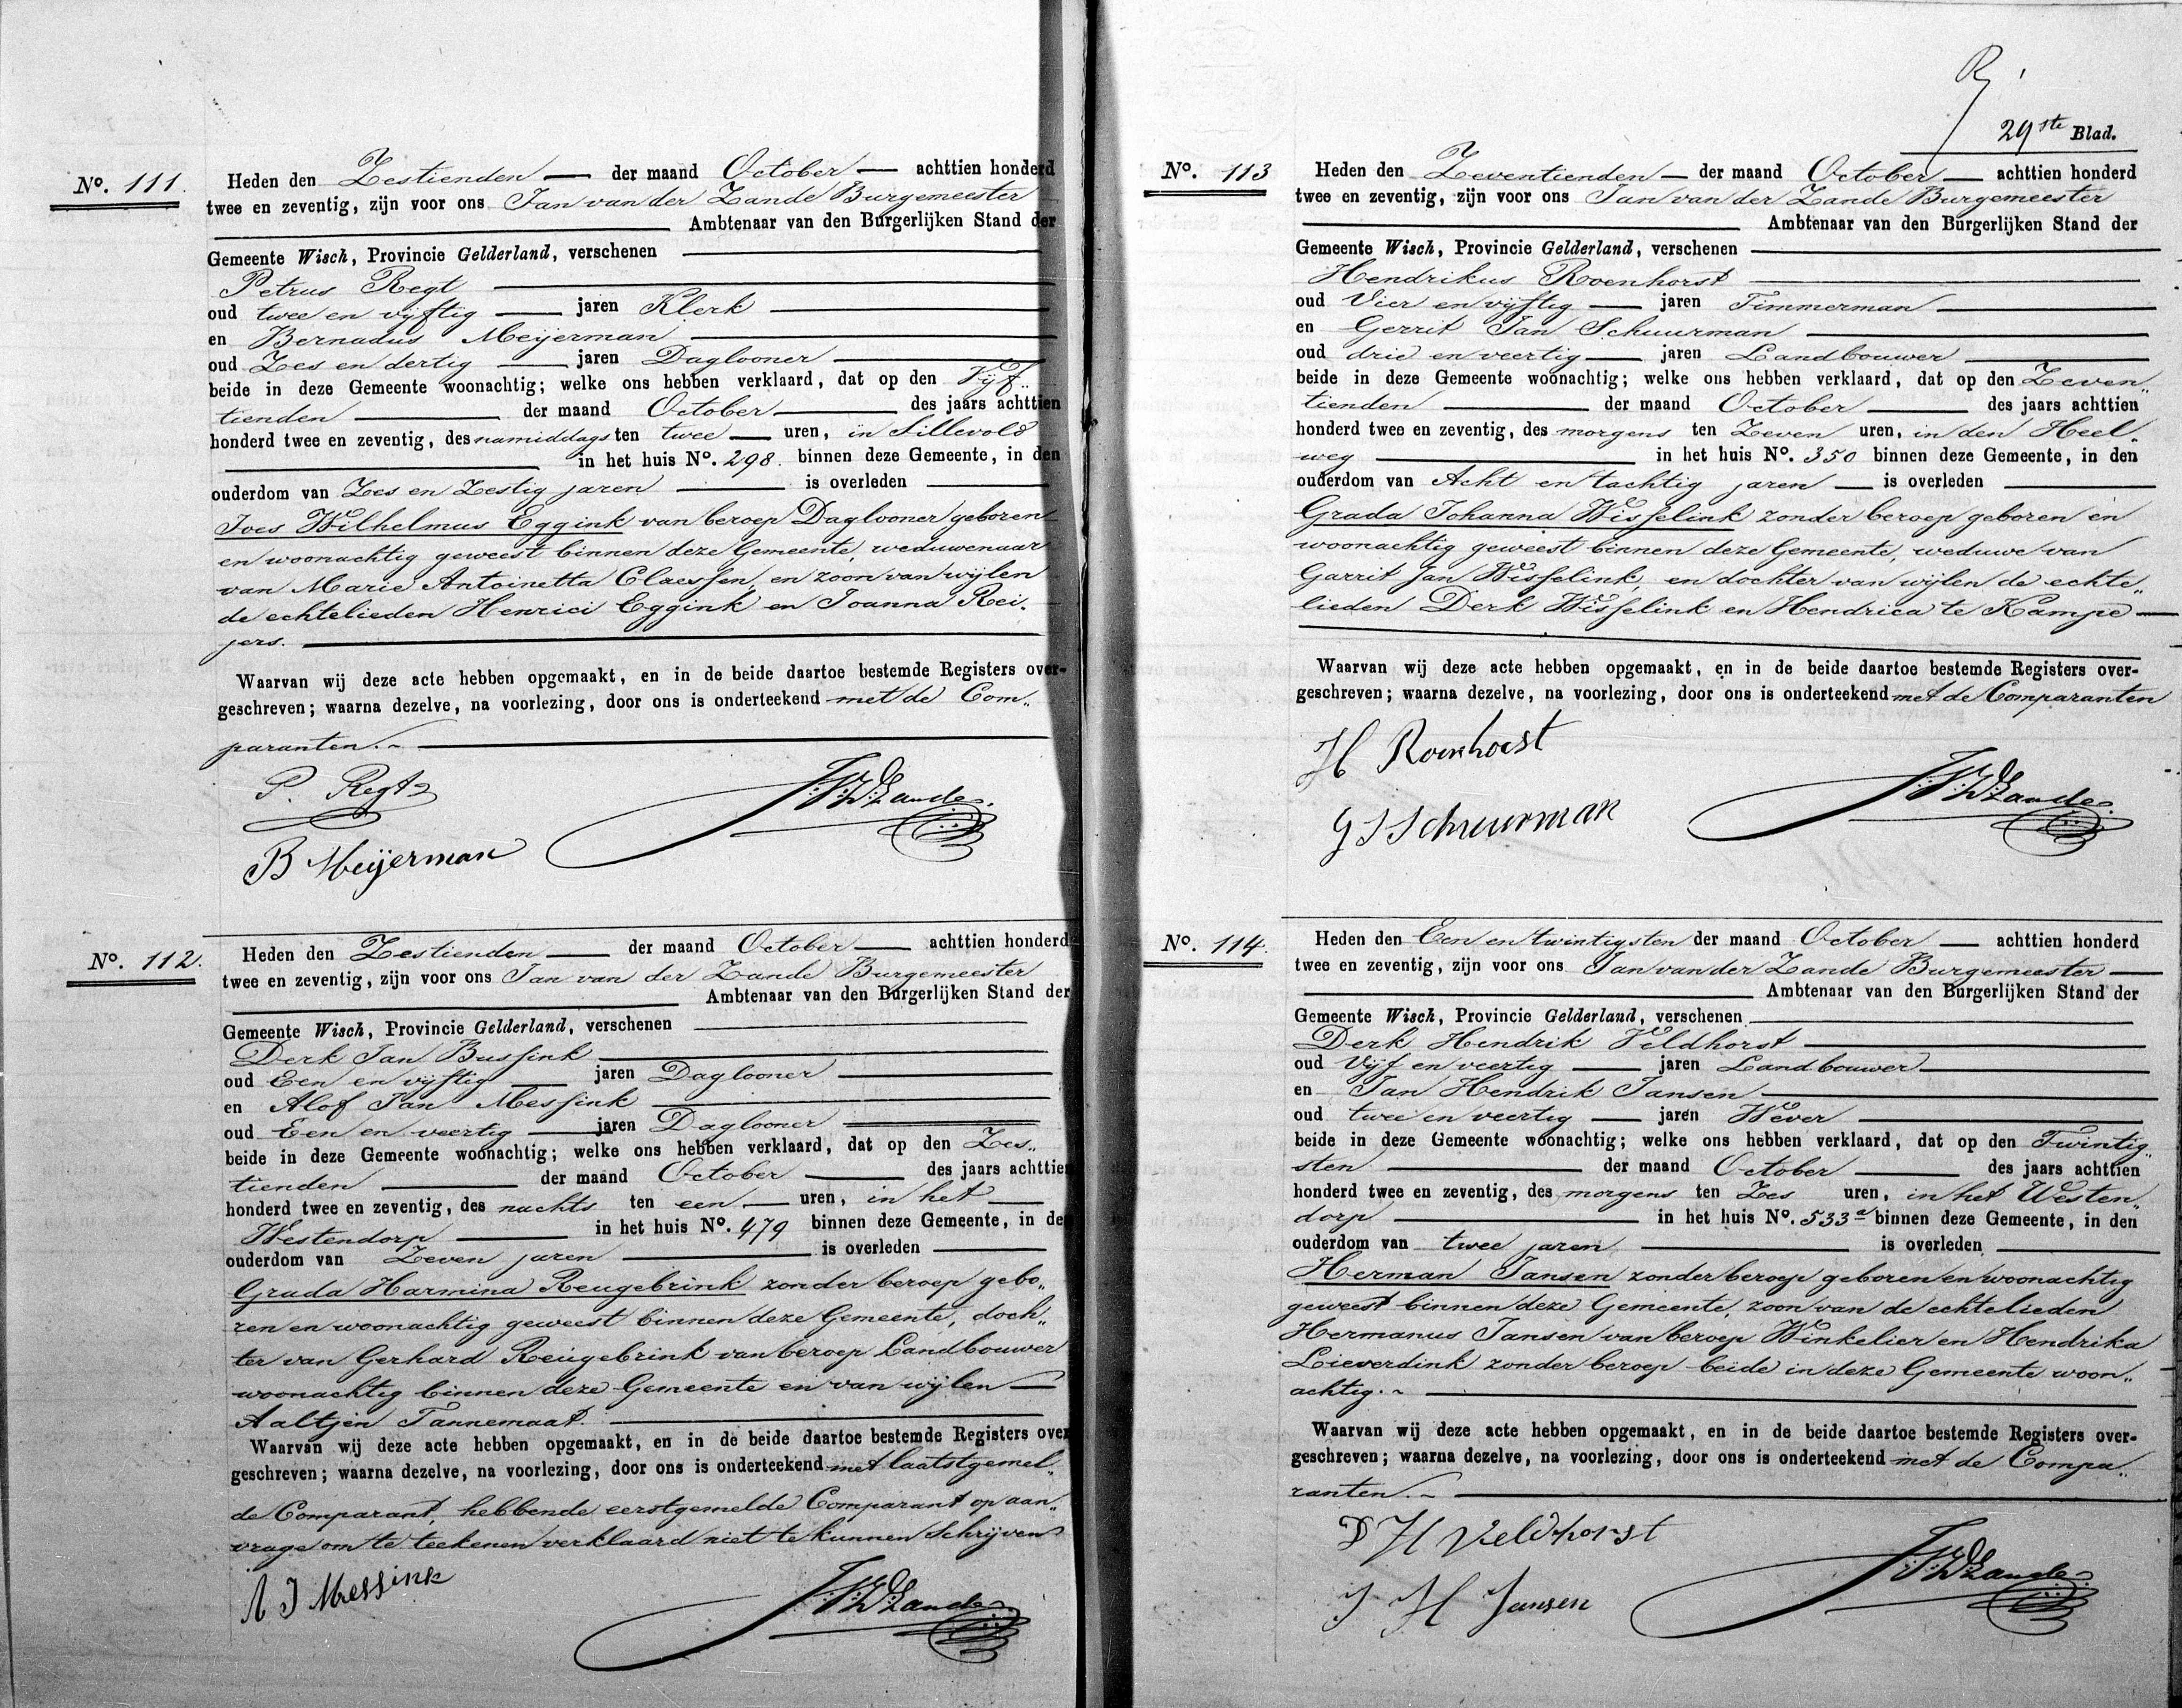 No. 111.
Heden den Zestienden der maand October achttien honderd
twee en zeventig, zijn voor ons Jan van der Zande Burgemeester
Ambtenaar van den Burgerlijken Stand der
Gemeente Wisch, Provincie Gelderland, verschenen
Petrus Regt
oud twee en vijftig jaren Klerk
en Bernadus Meijerman
oud Zes en dertig jaren Daglooner
beide in deze Gemeente woonachtig; welke ons hebben verklaard, dat op den Vijf„
tienden der maand October des jaars achttien
honderd twee en zeventig, des namiddags ten twee uren, in Sillevold
in het huis No. 298. binnen deze Gemeente, in den
ouderdom van Zes en Zestig jaren is overleden
Joes Wilhelmus Eggink van beroep Daglooner geboren
en woonachtig geweest binnen deze Gemeente, weduwenaar
van Marie Antoinetta Claessen, en zoon van wijlen
de echtelieden Henrici Eggink en Joanna Rei„
jers.
Waarvan wij deze acte hebben opgemaakt, en in de beide daartoe bestemde Registers over-
geschreven; waarna dezelve, na voorlezing, door ons is onderteekend met de Com„
paranten.
P. Regt
J:V:D:Zande.
B Meijerman
No. 112.
Heden den Zestienden der maand October achttien honderd
twee en zeventig, zijn voor ons Jan van der Zande Burgemeester
Ambtenaar van den Burgerlijken Stand der
Gemeente Wisch, Provincie Gelderland, verschenen
Derk Jan Bussink
oud Een en vijftig jaren Daglooner
en Alof Jan Messink
oud Een en veertig jaren Daglooner
beide in deze Gemeente woonachtig; welke ons hebben verklaard, dat op den Zes„
tienden der maand October des jaars achttien
honderd twee en zeventig, des nachts ten een uren, in het
Westendorp in het huis No. 479 binnen deze Gemeente, in de
ouderdom van Zeven jaren is overleden
Grada Harmina Reugebrink zonder beroep gebo„
ren en woonachtig geweest binnen deze Gemeente, doch„
ter van Gerhard Reugebrink van beroep Landbouwer
woonachtig binnen deze Gemeente en van wijlen
Aaltjen Tannemaat.
Waarvan wij deze acte hebben opgemaakt, en in de beide daartoe bestemde Registers over
geschreven; waarna dezelve, na voorlezing, door ons is onderteekend met laatstgemel„
de Comparant, hebbende eerstgemelde Comparant op aan„
vrage om te teekenen verklaard niet te kunnen schrijven
A J Messink
J:V:D:Zande.
29ste Blad.
No. 113
Heden den Zeventienden der maand October achttien honderd
twee en zeventig, zijn voor ons Jan van der Zande Burgemeester
Ambtenaar van den Burgerlijken Stand der
Gemeente Wisch, Provincie Gelderland, verschenen
Hendrikus Roenhorst
oud Vier en vijftig jaren Timmerman
en Gerrit Jan Schuurman
oud drie en veertig jaren Landbouwer
beide in deze Gemeente woonachtig; welke ons hebben verklaard, dat op den Zeven„
tienden der maand October des jaars achttien
honderd twee en zeventig, des morgens ten Zeven uren, in den Heel„
weg in het huis No. 350 binnen deze Gemeente, in den
ouderdom van Acht en tachtig jaren is overleden
Grada Johanna Wisselink zonder beroep geboren en
woonachtig geweest binnen deze Gemeente, weduwe van
Garrit Jan Wisselink, en dochter van wijlen de echte„
lieden Derk Wisselink en Hendrica te Kampe
Waarvan wij deze acte hebben opgemaakt, en in de beide daartoe bestemde Registers over-
geschreven; waarna dezelve, na voorlezing, door ons is onderteekend met de Comparanten
H Roenhorst
J:V:D:Zande.
G J Schuurman
No. 114.
Heden den Een en twintigsten der maand October achttien honderd
twee en zeventig, zijn voor ons Jan van der Zande Burgemeester
Ambtenaar van den Burgerlijken Stand der
Gemeente Wisch, Provincie Gelderland, verschenen
Derk Hendrik Veldhorst
oud Vijf en veertig jaren Landbouwer
en Jan Hendrik Jansen
oud twee en veertig jaren Wever
beide in deze Gemeente woonachtig; welke ons hebben verklaard, dat op den Twintig„
sten der maand October des jaars achttien
honderd twee en zeventig, des morgens ten Zes uren, in het Westen„
dorp in het huis No. 533a binnen deze Gemeente, in den
ouderdom van twee jaren is overleden
Herman Jansen zonder beroep geboren en woonachtig
geweest binnen deze Gemeente, zoon van de echtelieden
Hermanus Jansen van beroep Winkelier en Hendrika
Lieverdink zonder beroep beide in deze Gemeente woon„
achtig.
Waarvan wij deze acte hebben opgemaakt, en in de beide daartoe bestemde Registers over-
geschreven; waarna dezelve, na voorlezing, door ons is onderteekend met de Compa„
ranten.
D H Veldhorst
J:V:D:Zande.
J H Jansen